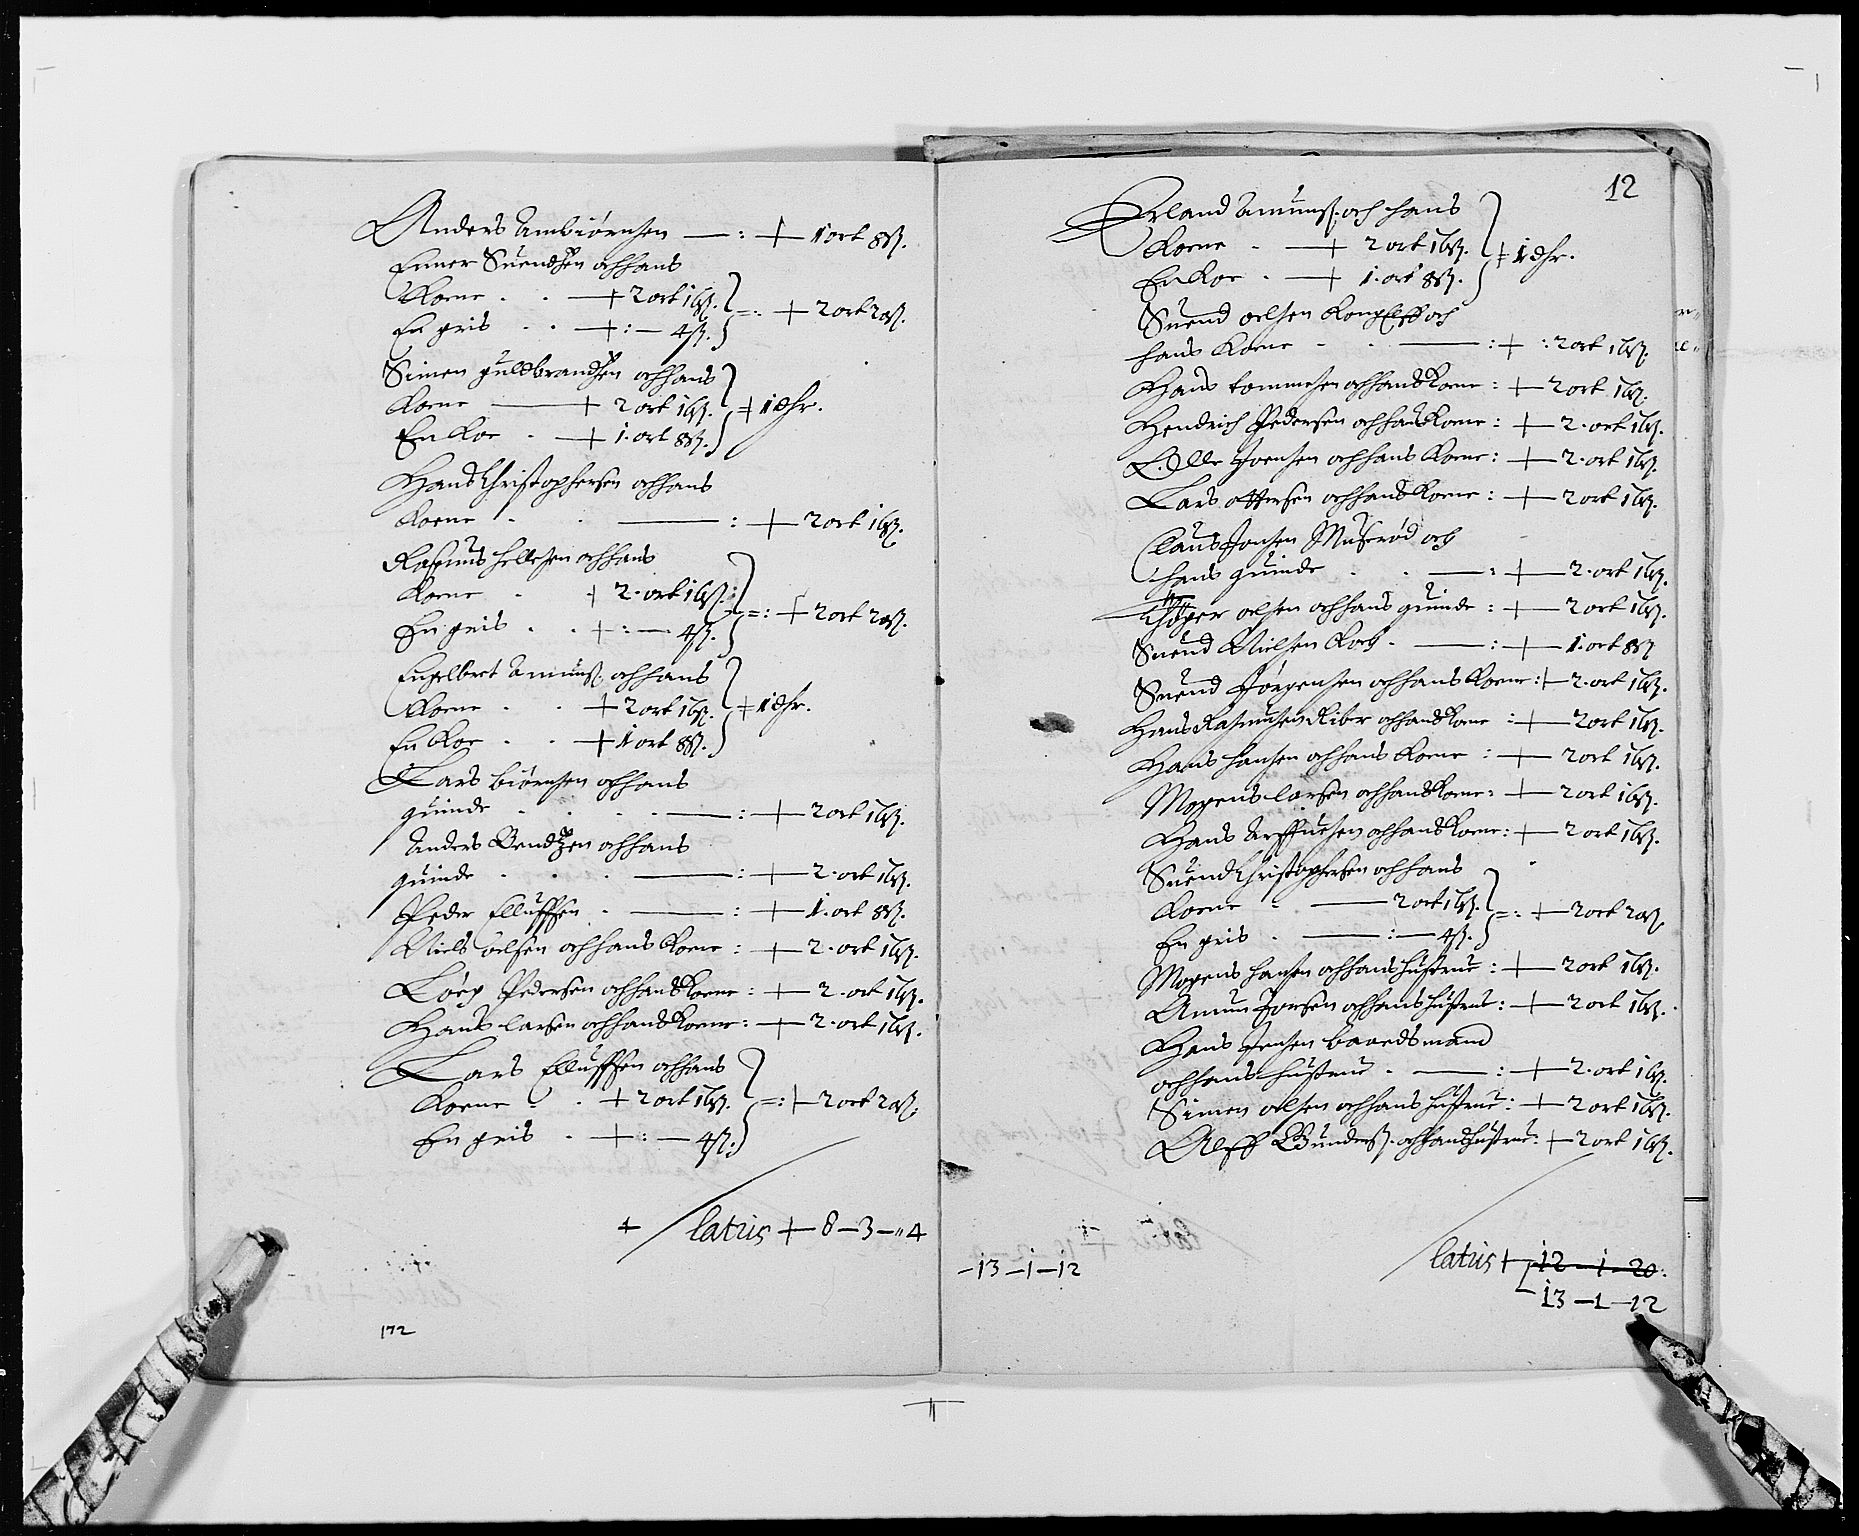 Anders Ambiørnsen — : + 1 ort 8 ß.
Enner Suendsen och hans
Kone . . — + 2 ort 16 ß.
=: + 2 ort 20 ß.
En gris . . + : — 4 ß.
Simen guldbrandsen och hans
Kone — + 2 ort 16 ß. + 1 dlr.
En Koe . — + 1. ort 8 ß.
Hans Christophersen och hans
Kone . . — : + 2 ort 16 ß.
Rasmus hellesen och hans
Kone . + 2. ort 16 ß.
=: + 2 ort 20 ß.
En gris . . + : — 4 ß.
Engelbret Amunß. och hans
Kone . . + 2 ort 16 ß. + 1 dlr.
En Koe . . + 1 ort 8 ß.
Lars biørnsen och hans
quinde . . . — : + 2 ort 16 ß.
Anders Bendtzen och hans
quinde . . . — : + 2. ort 16 ß.
Peder Elluffsen . — : + 1. ort 8 ß.
Niels oelsen och hans Kone : + 2. ort 16 ß.
Pedersen och hans Kone : + 2. ort 16 ß.
Hans larsen och hans Kone : + 2. ort 16 ß.
Lars Elluffsen och hans
Kone . . + 2 ort 16 ß. =: + 2 ort 20 ß.
En gris . + : — 4 ß.
+ / latus + 8 — 3 — „ 4
172
12
Erland Amunß. och hans
Kone . — + 2 ort 16 ß. + 1 dlr.
En Koe . — + 1. ort 8 ß.
Suend oelsen och
hans Kone . . — : + : 2 ort 16 ß.
Hans tommesen och hans Kone : + 2 ort 16 ß.
Hendrich Pedersen och hans Kone : + 2. ort 16 ß.
Olle Joensen och hans Kone : + 2. ort 16 ß.
Lars ottersen och hans Kone : + 2 ort 16 ß.
Claus Jensen Muserød och
hans quinde . . — : + 2. ort 16 ß.
oelsen och hans quinde : + 2 ort 16 ß.
Suend Nielsen Kock . — : + 1. ort 8 ß
Suend Jørgensen och hans Kone : + 2. ort 16 ß.
Hans Rasmusen Riber och hans Kone : + 2 ort 16 ß.
Hans hansen och hans Kone : + 2 ort 16 ß.
Mogens larsen och hans Kone : + 2 ort 16 ß.
Hans Arffuesen och hans Kone : + 2 ort 16 ß.
Suend Christophersen och hans
Kone . — 2 ort 16 ß.
=: + 2 ort 20 ß.
En gris . — : — 4 ß.
Mogens hansen och hans hustrue : + 2 ort 16 ß.
Amun Joesen och hans hustrue : + 2 ort 16 ß.
Hans Jensen baaedsmand
och hans hustrue . — : + 2. ort 16 ß.
Simen oelsen och hans hustrue : + 2 ort 16 ß.
Oleff Gunderß. och hans hustrue : + 2 ort 16 ß.
latus + 12 — 1 — 20 :
13 — 1 — 12
— 13 — 1 — 12